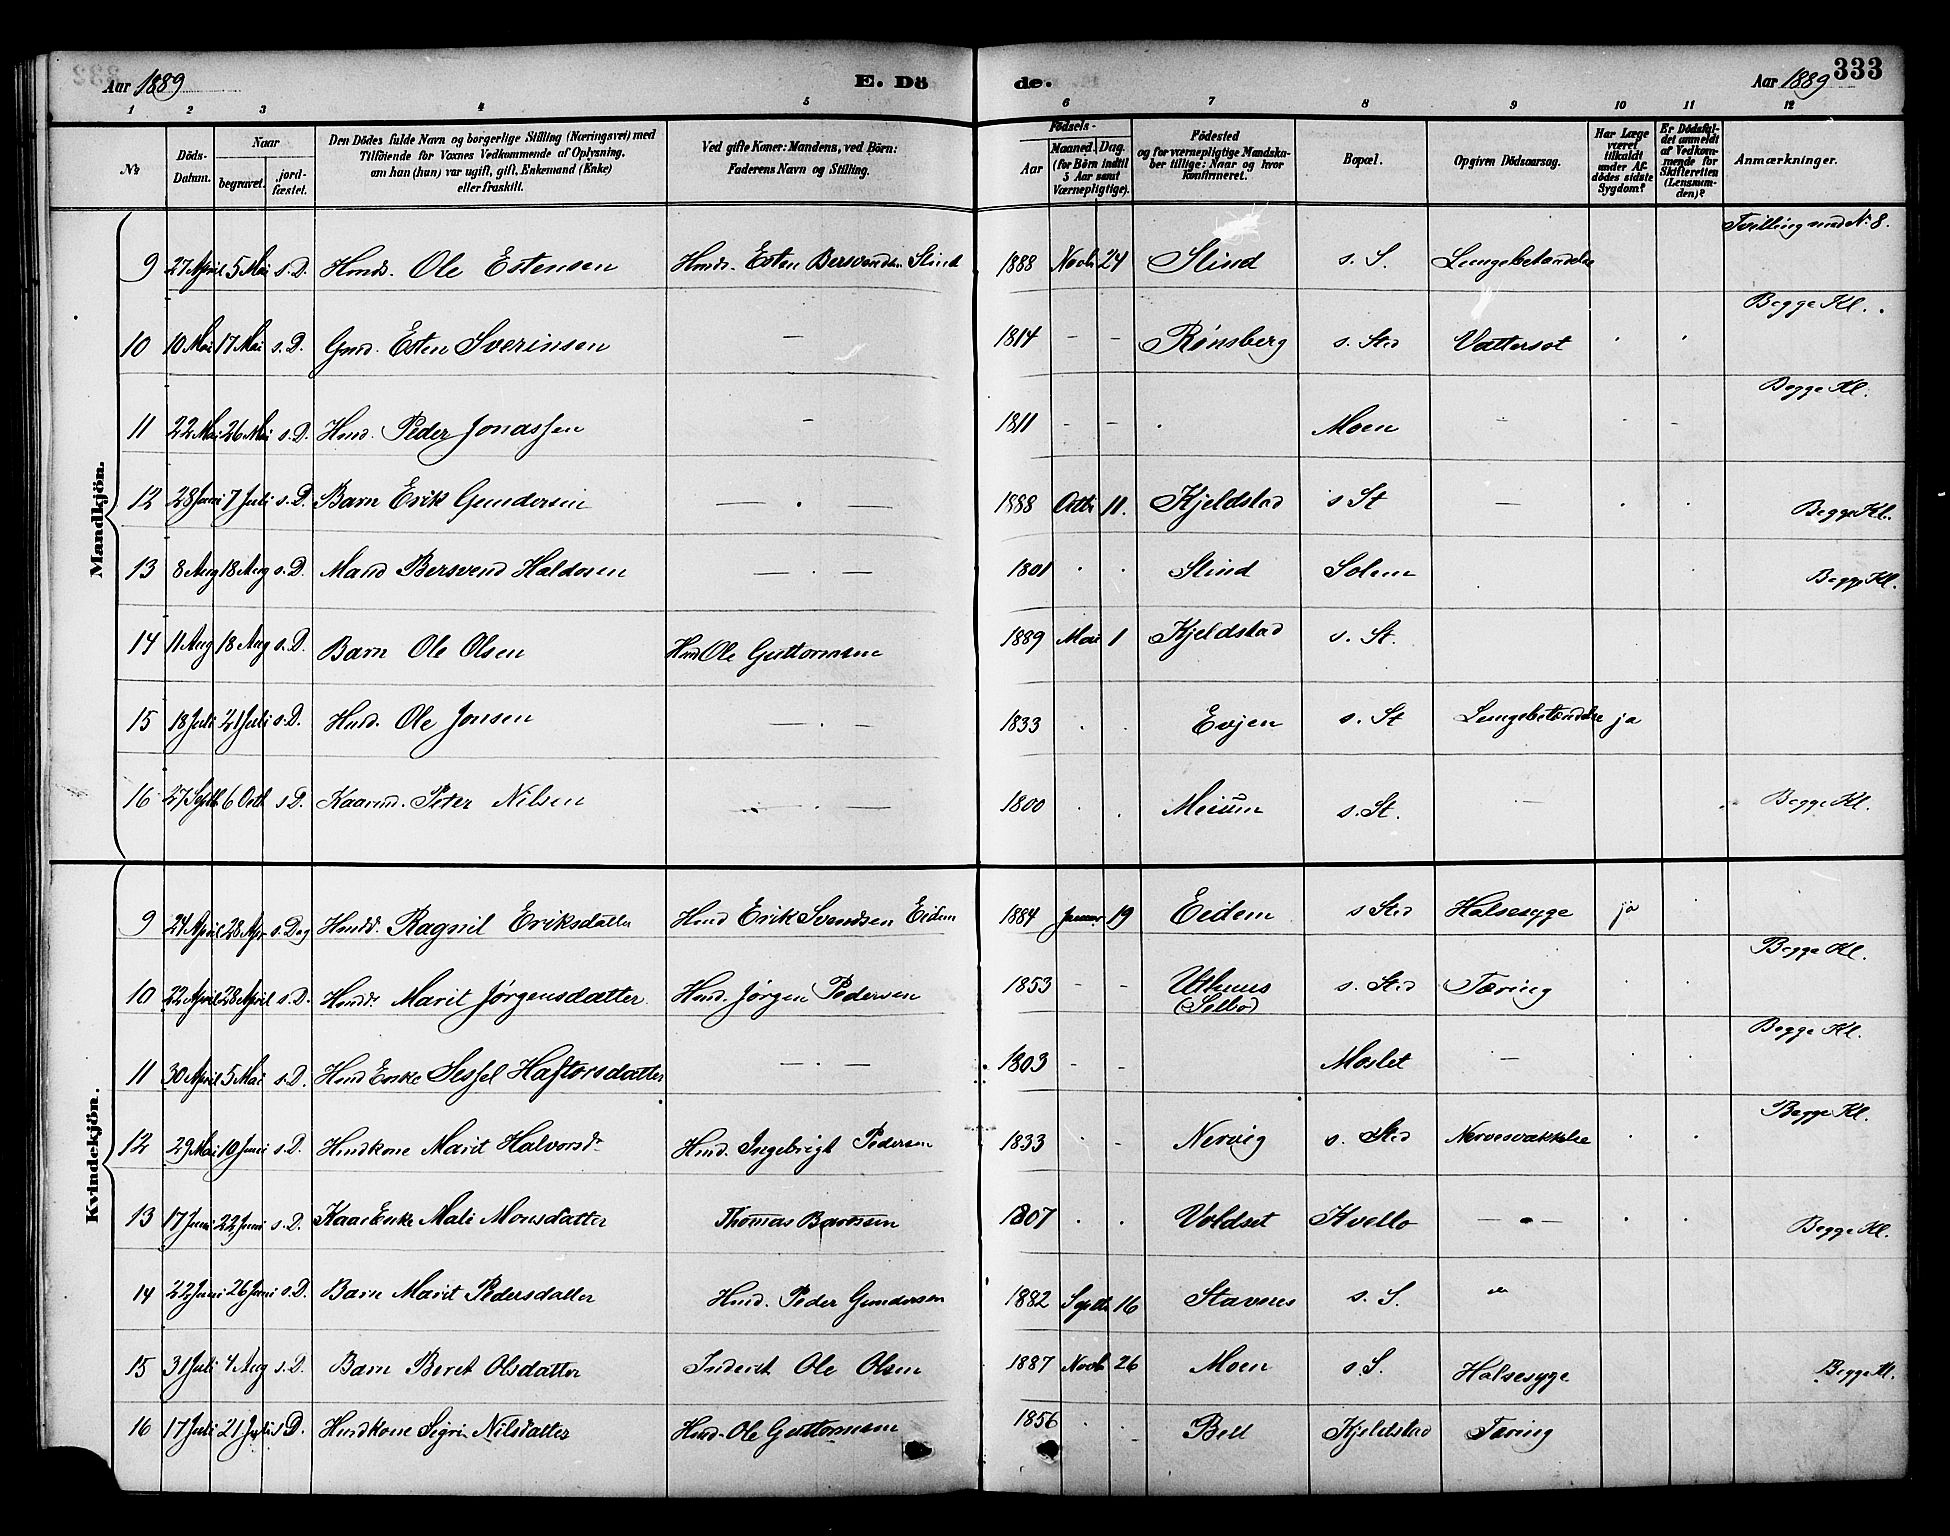 Aar 1889 E. Dö de. Aar 1889 333
1 2 3 4 5 6 7 8 9 10 11 12
№ Döds-Datum. Naar begravet. jord-fæstet. Den Dödes fulde Navn og borgerlige Stilling (Næringsvei) med Tilföiende for Voxnes Vedkommende af Oplysning, om han (hun) var ugift, gift, Enkemand (Enke) eller fraskilt. Ved gifte Koner: Mandens, ved Börn: Faderens Navn og Stilling. Födsels- Aar Maaned. Dag. (for Börn indtil 5 Aar samt Værnepligtige). Födested og for værnepligtige Mandska-ber tillige: Naar og hvor konfirmeret. Bopæl. Opgiven Dödsaarsag. Har Læge været tilkaldt under Af-dödes sidste Sygdom? Er Dödsfal-det anmeldt af Vedkom-mende for Skifteretten (Lensman-den)? Anmærkninger.
Mandkjön.
Tvilling med N. 8.
9 27 April 5 Mai s. D. Husds. Ole Estensen Husds. Esten Bersvends. Slind 1888 Novb. 24 Slind s. S. Lungebetændelse
Begge Kl.
10 10 Mai 17 Mai s. D. Gmd. Esten Sverinsen — 1814 - - Rönsberg s. Sted Vattersot
Begge Kl.
11 22 Mai 26 Mai s. D. Husd. Peder Jonassen — 1811 - - Moen -
12 28 Juni 7 Juli s. D. Barn Erik Gundersen — . — 1888 Octbr 11. Kjeldstad s St —
Begge Kl.
13 8 Aug 18 Aug s. D. Mand Bersvend Haldosen — . — 1801 Slind Solem
Begge Kl.
14 11 Aug 18 Aug s. D. Barn Ole Olsen Husd Ole Guttormsen 1889 Mai 1 Kjeldstad s. St.
15 18 Juli 21 Juli s. D. Husd. Ole Jonsen — . — 1833 Evjen s. St Lungebetændelse ja
16 27 Septb 6 Octb s D. Kaarmd. Peter Nilsen — . — 1800 Meium s. St. —
Begge Kl.
Kvindekjön.
9 24 April 28 Apr s. Dag Husdd. Ragnil Eriksdatter Husd Erik Svendsen Eidem 1884 Januar 19 Eidem s Sted Halsesyge ja
Begge Kl.
10 22 April 28 April s. D. Husdt. Marit Jørgensdatter Husd. Jørgen Pedersen 1853 - - Uthuus (Selbo) s. Sted Tæring
Begge Kl.
11 30 April 5 Mai s. D. Husd Enke Sessel Haftorsdatter — . — 1803 - - Moslet —
Begge Kl.
12 29 Mai 10 Juni s. D. Husdkone Marit Halvorsdr Husd. Ingebrigt Pedersen 1833 Nervig s. Sted Nervesvækkelse
13 17 Juni 22 Juni s. D. Kaar Enke Mali Monsdatter Thomas Barossen 1807 Voldset Kvello — . —
Begge Kl.
14 22 Juni 26 Juni s. D. Barn Marit Pedersdatter Husd. Peder Gundersen 1882 Septb. 16 Stavnes s. S.
15 31 Juli 4 Aug s. D. Barn Beret Olsdatter Inderst Ole Olsen 1887 Novb 26 Moen s. S. Halsesyge
Begge Kl.
16 17 Juli 21 Juli s D. Husdkone Sigri Nilsdatter Husd. Ole Guttormsen 1856 Bell Kjeldstad Tæring